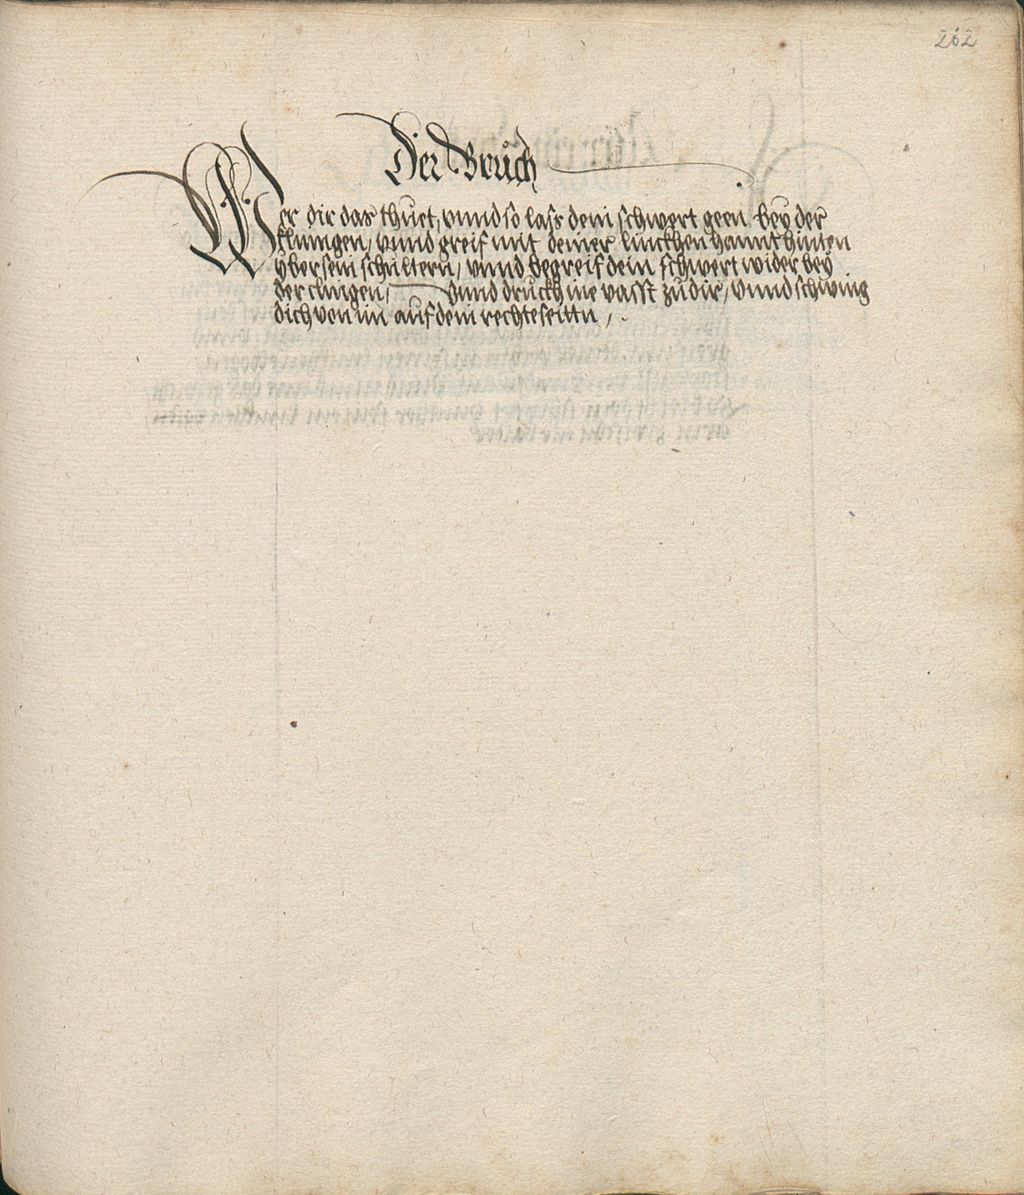 262
Der Bruch
Wer dir das thuet, vnnd so lass dein schwert geen bey der
klingen, vnnd greif mit deiner linckhen hannt hinten
yber sein schultern, vnnd begreif dein schwert wider bey
der clingen, vnnd druckh ine vasst zů dir, vnnd schwing
dich von im auf dein rechte seittn,.